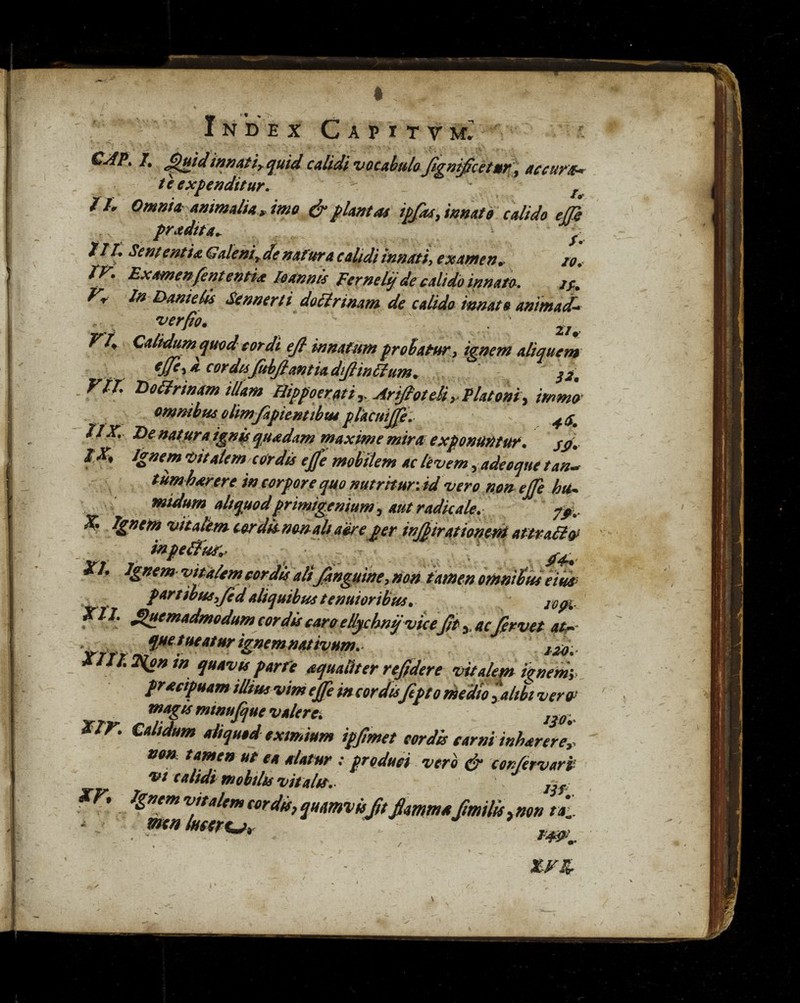 INDEX CAPITVM.
CAP. I. Quid innati, quid calidi vocabulo ſignificetur, accura-
tè expenditur. 1.
II. Omnia animalia, imo & plantas ipſas, innato calido eſſe
prædita. 5.
III. Sententiæ Galeni, de natura calidi innati, examen. 10.
IV. Examen ſententiæ Ioannis Fernelij de calido innato. 15.
V. In Danielis Sennerti doctrinam de calido innato animad-
verſio. 21.
VI. Calidum quod cordi eſt innatum probatur, ignem aliquem
eſſe, à cordis ſubſtantia diſtinctum. 32.
VII. Doctrinam illam Hippocrati, Ariſtoteli, Platoni, immo
omnibus olim ſapientibus placuiſſe. 46.
IIX. De natura ignis quædam maxime mira exponuntur. 59.
IX. Ignem vitalem cordis eſſe mobilem ac levem, adeoque tan-
tùm hærere in corpore quo nutritur: id vero non eſſe hu-
midum aliquod primigenium, aut radicale. 79.
X. Ignem vitalem cordis non ali aëre per inſpirationem attracto
in pectus. 94.
XI. Ignem vitalem cordis ali ſanguine, non tamen omnibus eius
partibus, ſed aliquibus tenuioribus. 109.
XII. Quemadmodum cordis caro ellychnij vice ſit, ac ſervet at-
que tueatur ignem nativum. 120.
XIII. Non in quavis parte æqualiter reſidere vitalem ignem;
præcipuam illius vim eſſe in cordis ſepto medio, alibi vero
magis minuſque valere. 130.
XIV. Calidum aliquod eximium ipſimet cordis carni inhærere,
non tamen ut ea alatur: produci verò & conſervari
vi calidi mobilis vitalis. 135.
XV. Ignem vitalem cordis, quamvis ſit flammæ ſimilis, non ta-
men lucere. 149.
XVI.